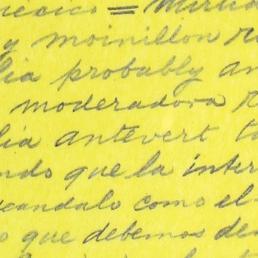 mexico = Mirta
y moinillon r
lia probably an
moderadora r
lia antevert t
ndo que la inter
scandalo como el
o que debemos de